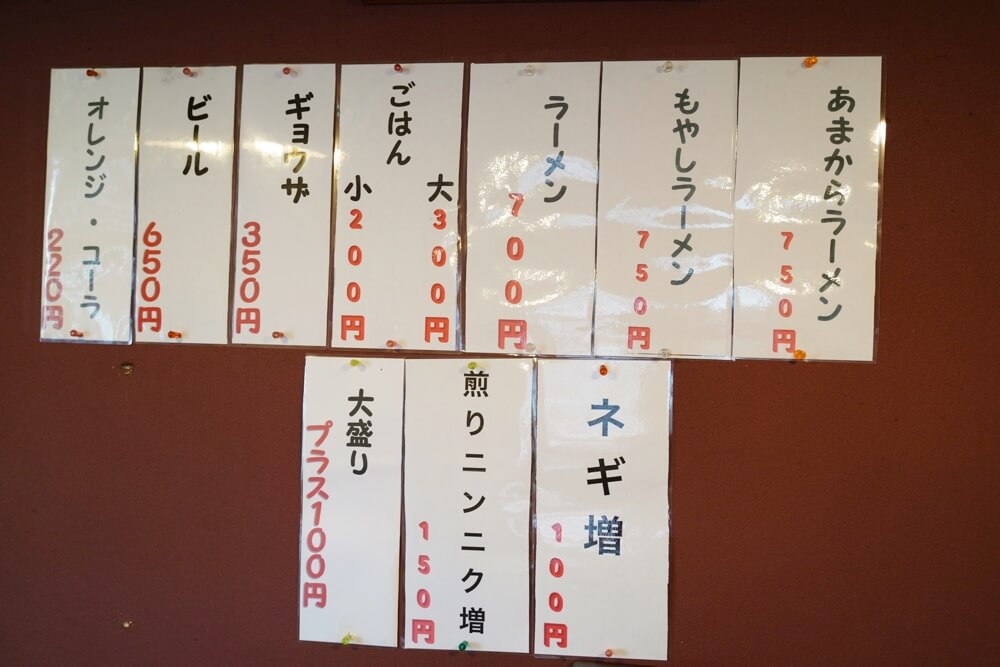 あまからラーメン
750円
もやしラーメン
750円
ラーメン
700円
ごはん
大300円
小200円
ギョウザ
350円
ビール
650円
オレンジ・コーラ
220円
ネギ増
100円
煎りニンニク増
150円
大盛り
プラス100円